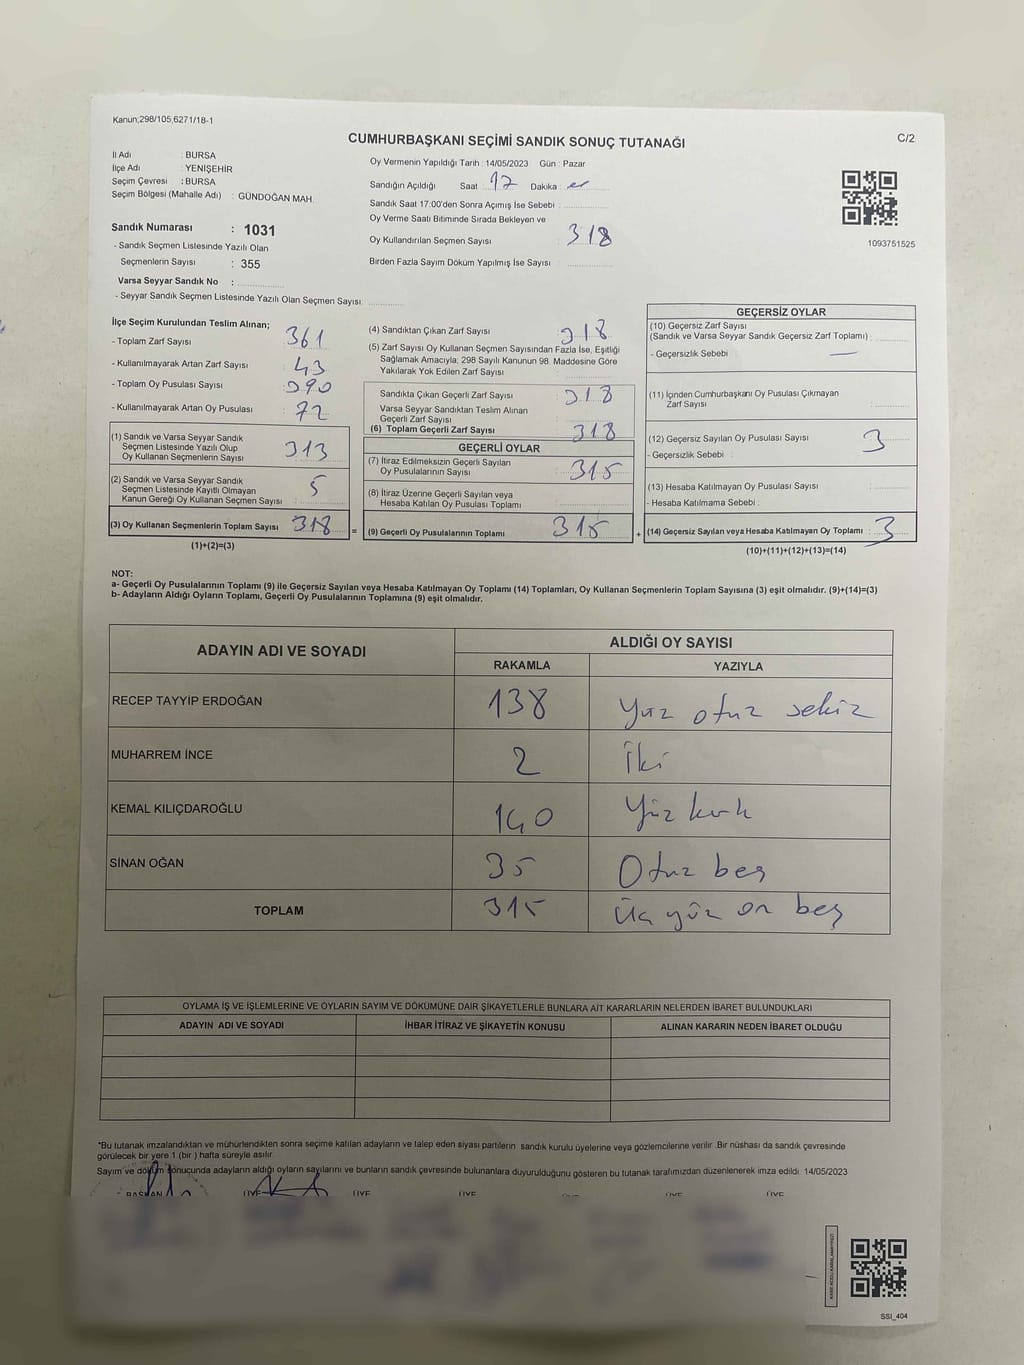 Kanun;298/105,6271/18-1
C/2
CUMHURBAŞKANI SEÇİMİ SANDIK SONUÇ TUTANAĞI
İl Adı : BURSA
İlçe Adı : YENİŞEHİR
Seçim Çevresi : BURSA
Seçim Bölgesi (Mahalle Adı) : GÜNDOĞAN MAH.
Oy Vermenin Yapıldığı Tarih : 14/05/2023 Gün : Pazar
Sandığın Açıldığı Saat 17 Dakika
Sandık Saat 17:00'den Sonra Açımış İse Sebebi :
Oy Verme Saati Bitiminde Sırada Bekleyen ve
Oy Kullandırılan Seçmen Sayısı 318
Birden Fazla Sayım Döküm Yapılmış İse Sayısı
1093751525
Sandık Numarası : 1031
- Sandık Seçmen Listesinde Yazılı Olan
Seçmenlerin Sayısı : 355
Varsa Seyyar Sandık No :
- Seyyar Sandık Seçmen Listesinde Yazılı Olan Seçmen Sayısı:
İlçe Seçim Kurulundan Teslim Alınan;
- Toplam Zarf Sayısı 361
- Kullanılmayarak Artan Zarf Sayısı 43
- Toplam Oy Pusulası Sayısı 390
- Kullanılmayarak Artan Oy Pusulası 72
(1) Sandık ve Varsa Seyyar Sandık
Seçmen Listesinde Yazılı Olup
Oy Kullanan Seçmenlerin Sayısı 313
(2) Sandık ve Varsa Seyyar Sandık
Seçmen Listesinde Kayıtlı Olmayan
Kanun Gereği Oy Kullanan Seçmen Sayısı 5
(3) Oy Kullanan Seçmenlerin Toplam Sayısı 318 =
(1)+(2)=(3)
(4) Sandıktan Çıkan Zarf Sayısı 318
(5) Zarf Sayısı Oy Kullanan Seçmen Sayısından Fazla İse, Eşitliği
Sağlamak Amacıyla, 298 Sayılı Kanunun 98. Maddesine Göre
Yakılarak Yok Edilen Zarf Sayısı
Sandıkta Çıkan Geçerli Zarf Sayısı 318
Varsa Seyyar Sandıktan Teslim Alınan
Geçerli Zarf Sayısı
(6) Toplam Geçerli Zarf Sayısı 318
GEÇERLİ OYLAR
(7) İtiraz Edilmeksizin Geçerli Sayılan
Oy Pusulalarının Sayısı 315
(8) İtiraz Üzerine Geçerli Sayılan veya
Hesaba Katılan Oy Pusulası Toplamı
(9) Geçerli Oy Pusulalarının Toplamı 315 +
GEÇERSİZ OYLAR
(10) Geçersiz Zarf Sayısı
(Sandık ve Varsa Seyyar Sandık Geçersiz Zarf Toplamı) :
- Geçersizlik Sebebi : —
(11) İçinden Cumhurbaşkanı Oy Pusulası Çıkmayan
Zarf Sayısı
(12) Geçersiz Sayılan Oy Pusulası Sayısı 3
- Geçersizlik Sebebi :
(13) Hesaba Katılmayan Oy Pusulası Sayısı
- Hesaba Katılmama Sebebi :
(14) Geçersiz Sayılan veya Hesaba Katılmayan Oy Toplamı : 3
(10)+(11)+(12)+(13)=(14)
NOT:
a- Geçerli Oy Pusulalarının Toplamı (9) ile Geçersiz Sayılan veya Hesaba Katılmayan Oy Toplamı (14) Toplamları, Oy Kullanan Seçmenlerin Toplam Sayısına (3) eşit olmalıdır. (9)+(14)=(3)
b- Adayların Aldığı Oyların Toplamı, Geçerli Oy Pusulalarının Toplamına (9) eşit olmalıdır.
ADAYIN ADI VE SOYADI ALDIĞI OY SAYISI
RAKAMLA YAZIYLA
RECEP TAYYİP ERDOĞAN 138 Yüz otuz sekiz
MUHARREM İNCE 2 İki
KEMAL KILIÇDAROĞLU 140 Yüz kırk
SİNAN OĞAN 35 Otuz beş
TOPLAM 315 üç yüz on beş
OYLAMA İŞ VE İŞLEMLERİNE VE OYLARIN SAYIM VE DÖKÜMÜNE DAİR ŞİKAYETLERLE BUNLARA AİT KARARLARIN NELERDEN İBARET BULUNDUKLARI
ADAYIN ADI VE SOYADI İHBAR İTİRAZ VE ŞİKAYETİN KONUSU ALINAN KARARIN NEDEN İBARET OLDUĞU
*Bu tutanak imzalandıktan ve mühürlendikten sonra seçime katılan adayların ve talep eden siyasi partilerin sandık kurulu üyelerine veya gözlemcilerine verilir. Bir nüshası da sandık çevresinde
görülecek bir yere 1 (bir ) hafta süreyle asılır.
Sayım ve döküm sonucunda adayların aldığı oyların sayılarını ve bunların sandık çevresinde bulunanlara duyurulduğunu gösteren bu tutanak tarafımızdan düzenlenerek imza edildi. 14/05/2023
BAŞKAN ÜYE ÜYE ÜYE ÜYE ÜYE ÜYE
SSI_404